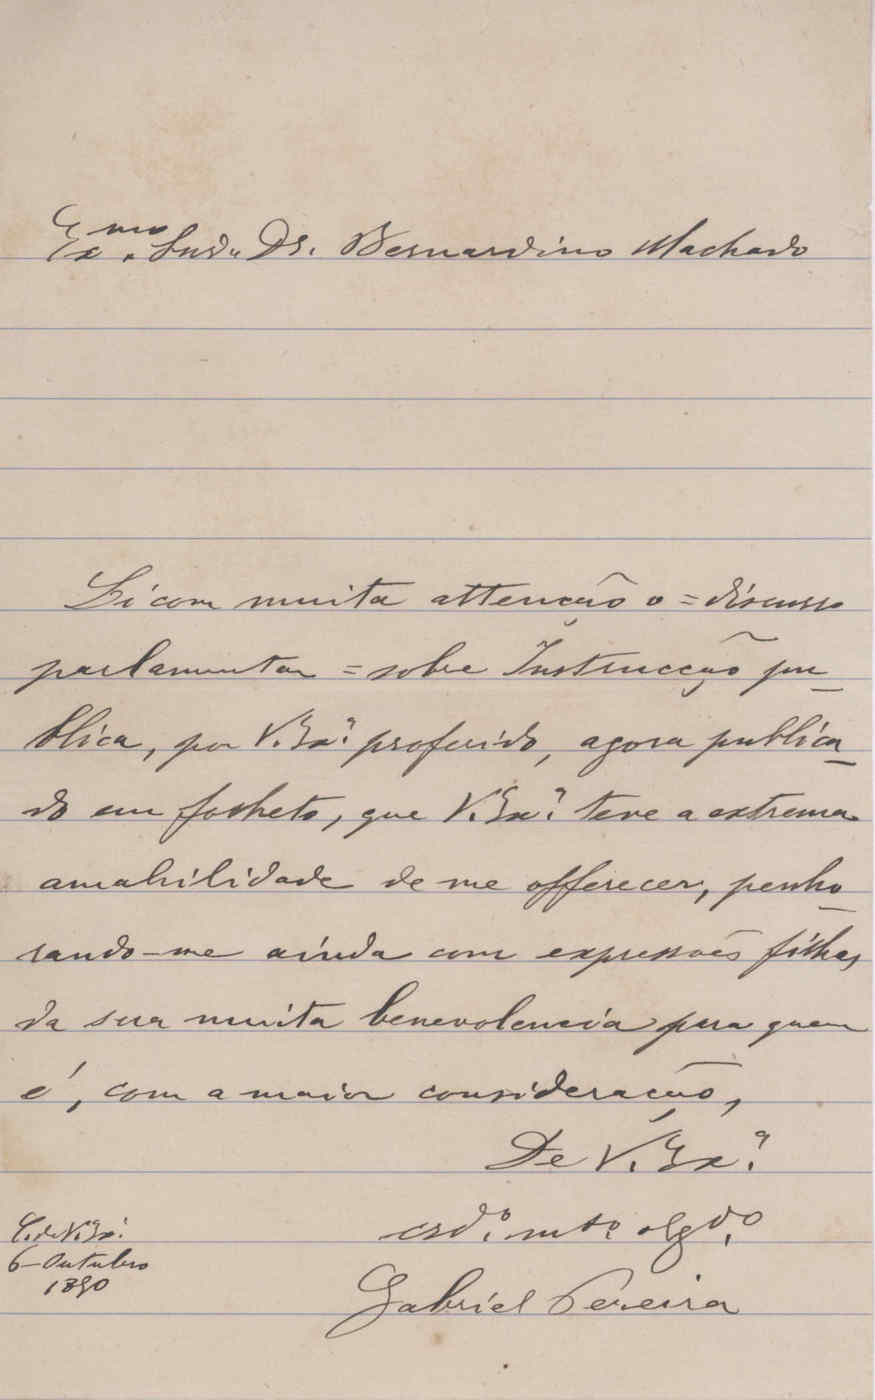 Exmo. Snr. Dr. Bernardino Machado
Li com muita attenção o = discurso
parlamentar = sobre Instrucção pu-
blica, por V. Exª. proferido, agora publica-
do em folheto, que V. Exª. teve a extrema
amabilidade de me offerecer, penho-
rando-me ainda com expressões filhas
da sua muita benevolencia para quem
é, com a maior consideração,
De V. Exª.
crdº. mtº. obgdº.
C. de V. Exª.
6-Outubro
1890
Gabriel Pereira